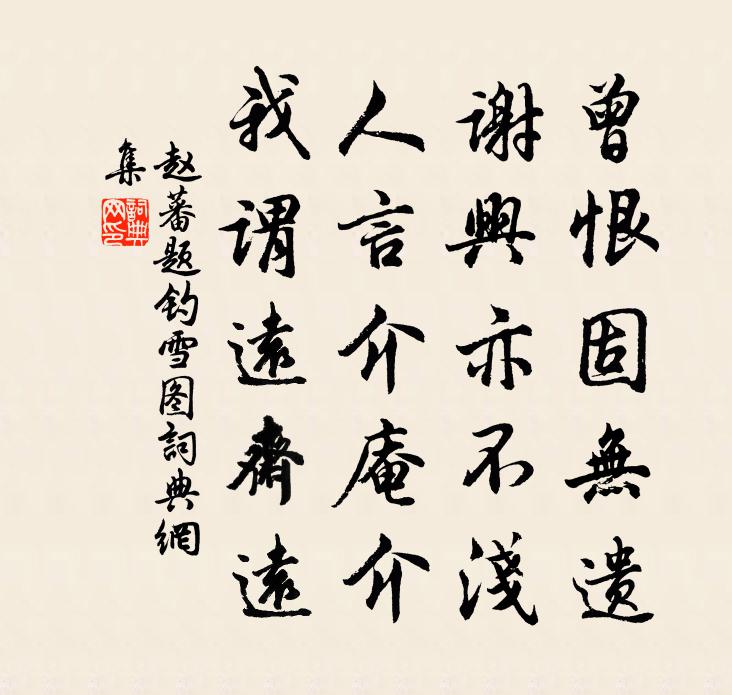 曾恨固無遺
謝興亦不淺
人言介庵介
我謂遠齋遠
赵蕃题钓雪图詞典網
集
詞典
网印